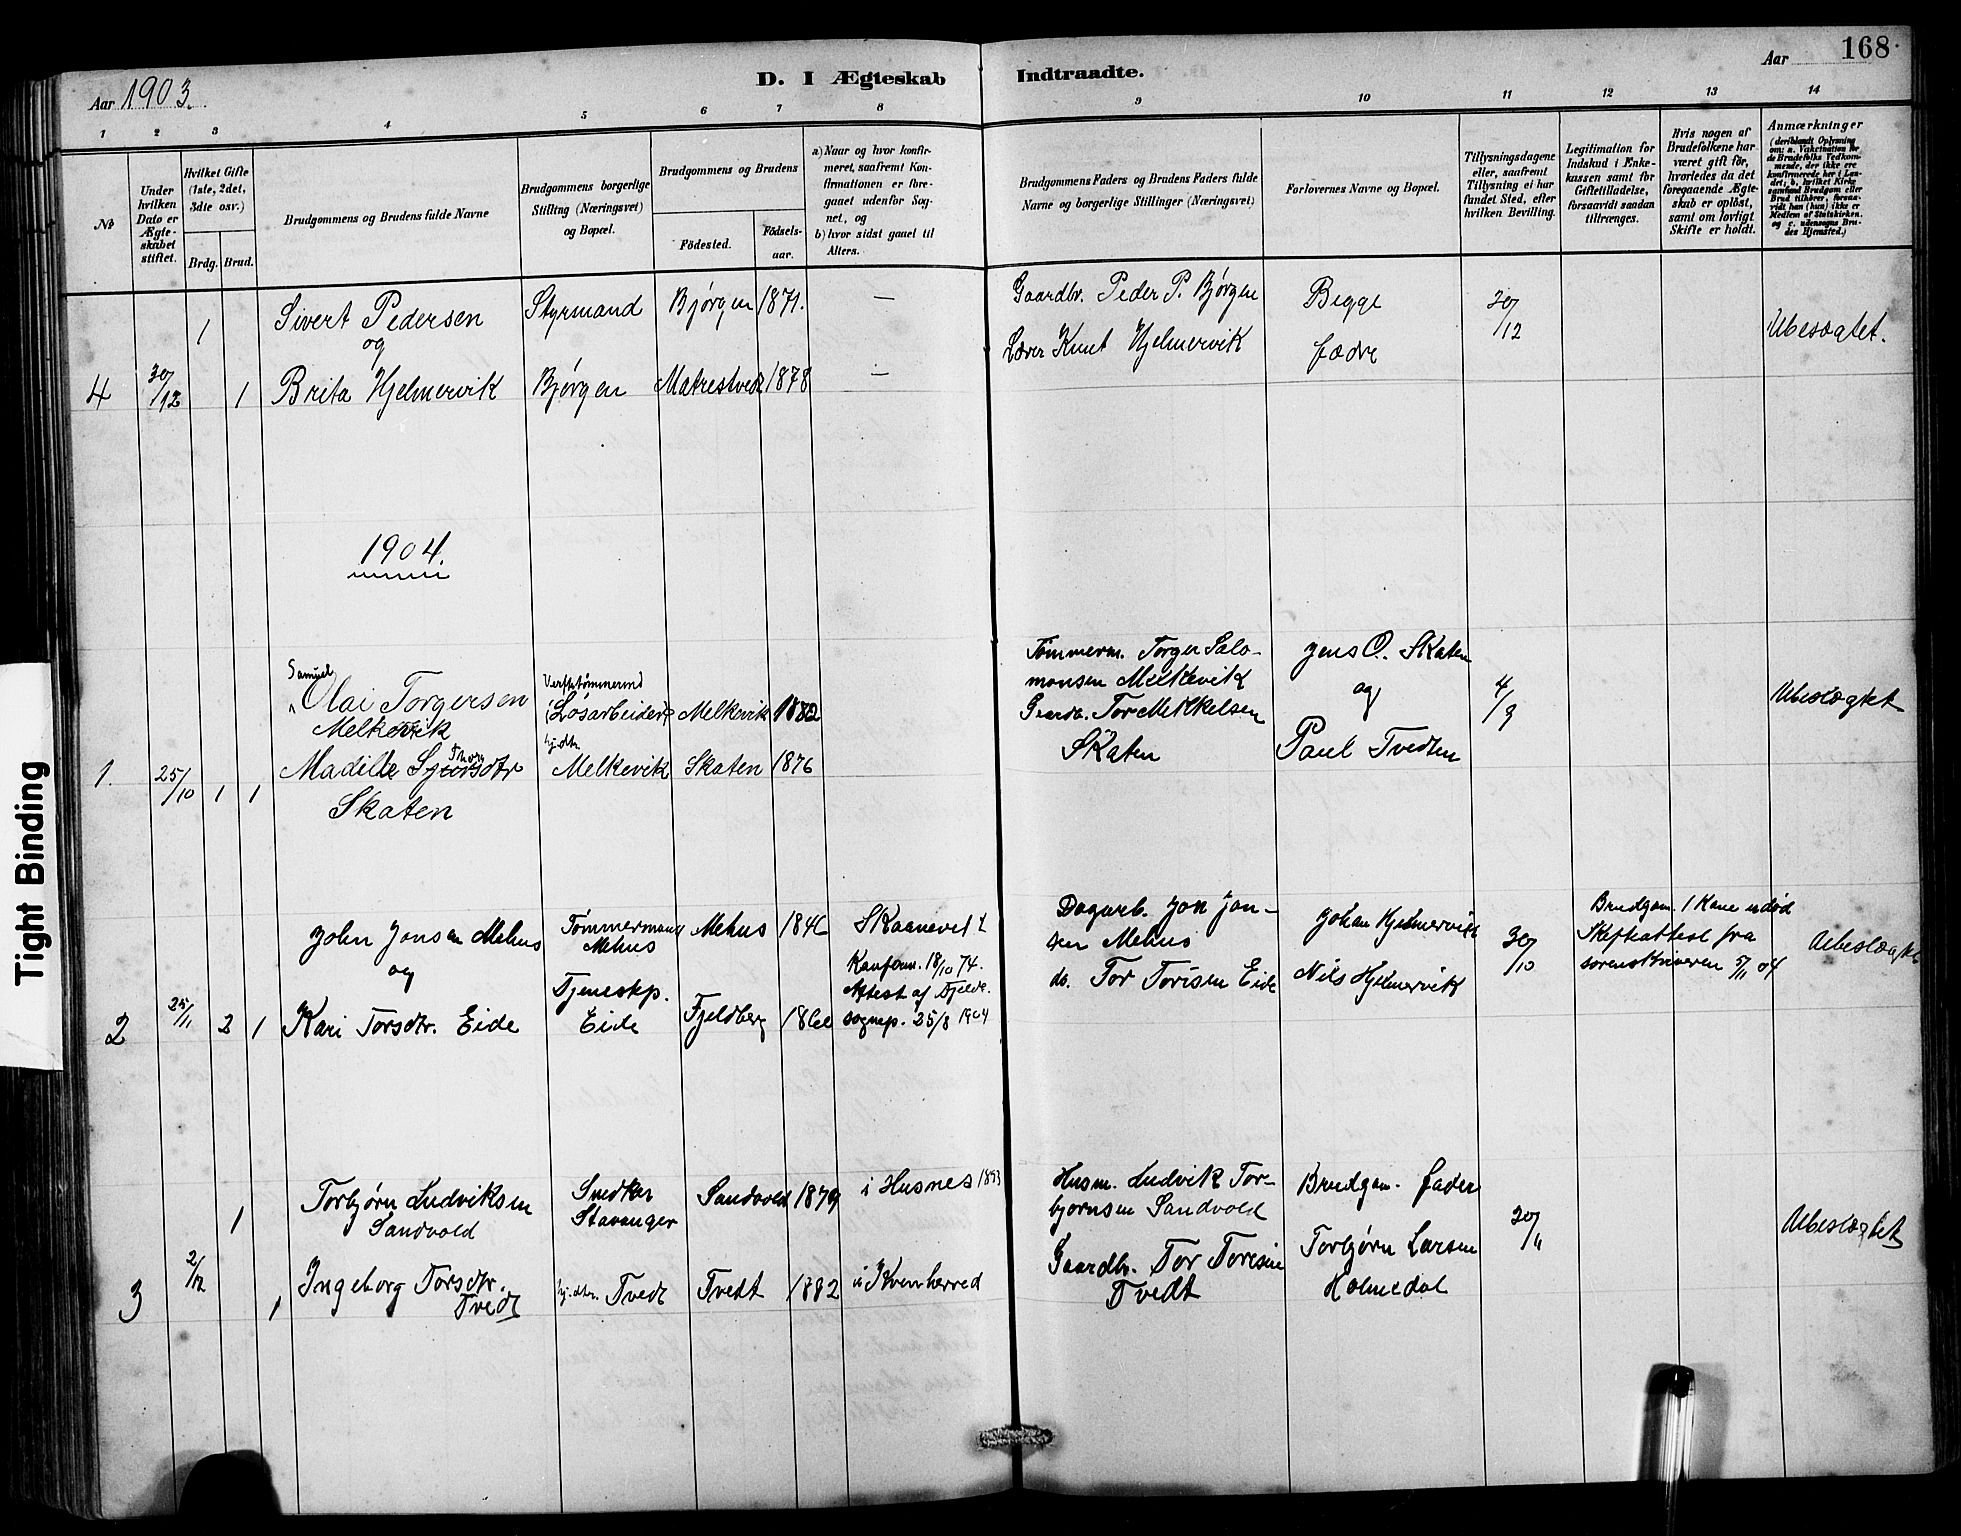 Aar 1903.
D. I Ægteskab
Indtraadte.
Aar
168
1
2
3
4
5
6
7
8
9
10
11
12
13
14
No
Under hvilken Dato er Ægteskabet stiftet.
Hvilket Gifte (1ste, 2det, 3die osv.)
Brdg.
Brud.
Brudgommens og Brudens fulde Navne
Brudgommens borgerlige Stilling (Næringsvei) og Bopæl.
Brudgommens og Brudens
Fødested.
Fødsels-aar.
a) Naar og hvor konfirmeret, saafremt Konfirmationen er foregaaet udenfor Sognet, og
b) hvor sidst gaaet til Alters.
Brudgommens Faders og Brudens Faders fulde Navne og borgerlige Stillinger (Næringsvei)
Forlovernes Navne og Bopæl.
Tillysningsdagene eller, saafremt Tillysning ei har fundet Sted, efter hvilken Bevilling.
Legitimation for Indskud i Enkekassen samt for Giftetilladelse, forsaavidt saadan tiltrænges.
Hvis nogen af Brudefolkene har været gift før, hvorledes da det foregaaende Ægteskab er opløst, samt om lovligt Skifte er holdt.
Anmærkninger
(deriblandt Oplysning om: a. Vakcination for de Brudefolks Vedkommende, der ikke ere konfirmerede her i Landet; b. hvilket Kirkesamfund Brudgom eller Brud tilhører, forsaavidt han (hun) ikke er Medlem af Statskirken. og c. udensogns Brudes Hjemsted.)
1
Sivert Pedersen
Styrmand
Bjørgen
1871.
—
Gaardbr. Peder P. Bjørgen
Begge
30/12
Ubeslægtet.
og
Lærer Knut Hjelmervik
fædre
4
30/12
1
Brita Hjelmervik
Bjørgen
Matrestved
1878
—
1904.
Samuel
Olai Torgersen
Melkevik
Løsarbeider
Melkevik
1882
Tømmerm. Torger Salo-
monsen Melkevik
Gaardb. Tor Mikkelsen
Skaten
Jens O. Skaten
og
Paul Tvedten
4/9
Ubeslægtet
1.
25/10
1
1
Madille
Thor
Skaten
hj.dtr.
Melkevik
Skaten
1876
John Jonsen Mehus
og
Tømmermand
Mehus
Mehus
1846
Skaanevik
Dagarb. Jon Jon-
sen Mehus
do. Tor Torisen Eide
Johan Hjelmervik
Nils Hjelmervik
30/10
Brudgom. 1 Kone er død
Skifteattest fra
sorenskriveren 5/11 04
Ubeslægtet
2
25/11
2
1
Kari Torsdtr. Eide
Tjenestp.
Eide
Fjeldberg
Konform. 18/10 74.
Attest af Fjeldb.
sognep. 25/8 1904
1
Torbjørn Ludviksen
Sandvold
Snedker
Stavanger
Sandvold
1879
i Husnes 1893
Husm. Ludvik Tor-
bjørnsen Sandvold
Brudgom. fader
Torbjørn Larsen
Holmedal
20/11
Ubeslægtet
3
2/12
1
Ingeborg Torsdtr.
Tvedt
hj.dtr. Tvedt
Tvedt
1882
i Kvinherred
Gaardbr. Tor Toresen
Tvedt
Tight Binding